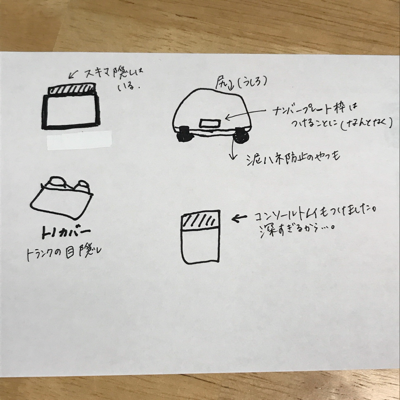 スキマ隠しに
いる.
尻(うしろ)
ナンバープレート枠は
つけることに(なんとなく)
泥ハネ防止のやつも
トノカバー
トランクの目隠し
コンソールトレイもつけました。
深すぎるから…。